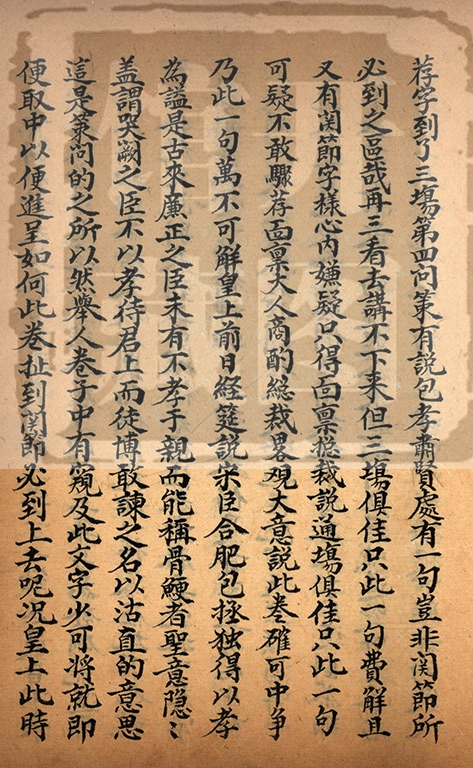 荐字到了三塲第四问策有説包孝肅賢處有一句豈非関節所
必到之區哉再三看去講不下来但三塲俱佳只此一句費解且
又有関節字樣心内嫌疑只得面禀総裁説通塲俱佳只此一句
可疑不敢驟荐面禀大人商酌総裁畧观大意説此卷確可中争
乃此一句萬不可解皇上前日経筵説宋臣合肥包拯独得以孝
為謚是古来亷正之臣未有不孝于親而能稱骨鲠者聖意隐〻
盖謂哭阙之臣不以孝待君上而徒博敢諫之名以沽直的意思
這是策问的之所以然舉人卷子中有窺及此文字少可将就即
便取中以便進呈如何此卷扯到関節必到上去呢况皇上此時